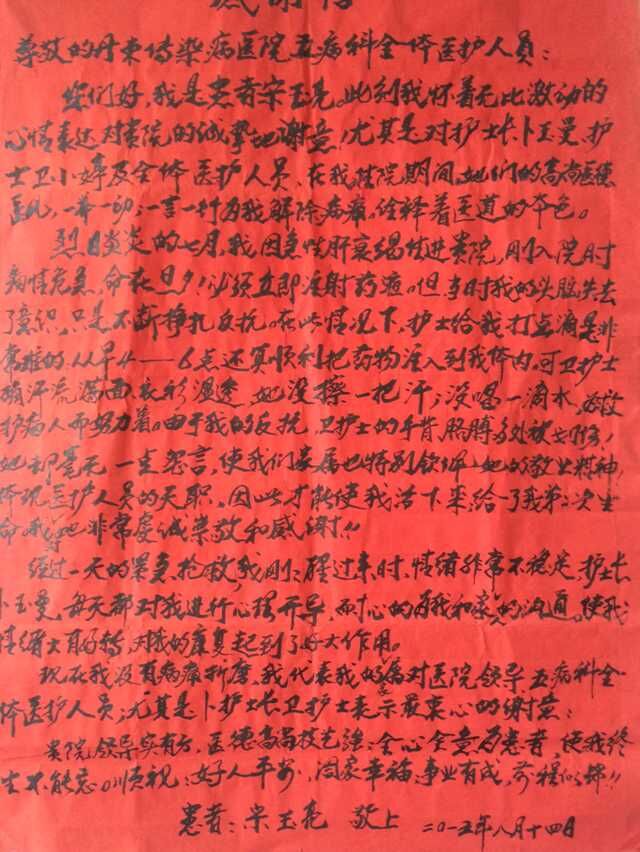 感谢信
尊敬的丹东传染病医院五病科全体医护人员:
您们好,我是患者宋玉亮。此刻我怀着无比激动的
心情表达对贵院的诚挚地谢意!尤其是对护士长卜玉曼、护
士卫小婷及全体医护人员、在我住院期间,她们的高尚医德
医风,一举一动、一言一行为我解除病痛,诠释着医道的本色。
烈日炎炎的七月,我因急性肝衰竭住进贵院,刚入院时
病情危急,命在旦夕!必须立即注射药液。但当时我的头脑失去
了意识,只是不断挣扎反抗。在此情况下,护士给我打点滴是非
常难的、从早4——6点还算顺利把药物注入到我体内,可卫护士
满面衣衫湿透,她没擦一把汗;没喝一滴水,为救
护病人而努力着。由于我的反抗,卫护士的手背胳膊多处被
她却毫无一丝怨言,使我们家属也特别钦佩她的敬业精神,
体现医护人员的天职,因此才能使我活下来给了我第二次生
命我等她非常虔诚崇敬和感谢!!
经过一天的紧急抢救,我刚刚醒过来时,情绪非常不稳定,护士长
卜玉曼,每天都对我进行心理开导,耐心的为我和家人的沟通,使我
情绪大有好转,对我的康复起到了好大作用。
现在我没有病痛折磨,我代表我的家属对医院领导、五病科全
体医护人员;尤其是卜护士长卫护士表示最衷心的谢意:
贵院领导实有方,医德高尚技艺强:全心全意为患者,使我终
生不能忘。顺祝:好人平安,阖家幸福事业有成,前程似锦!!
患者:宋玉亮 敬上 二〇一五年八月十四日